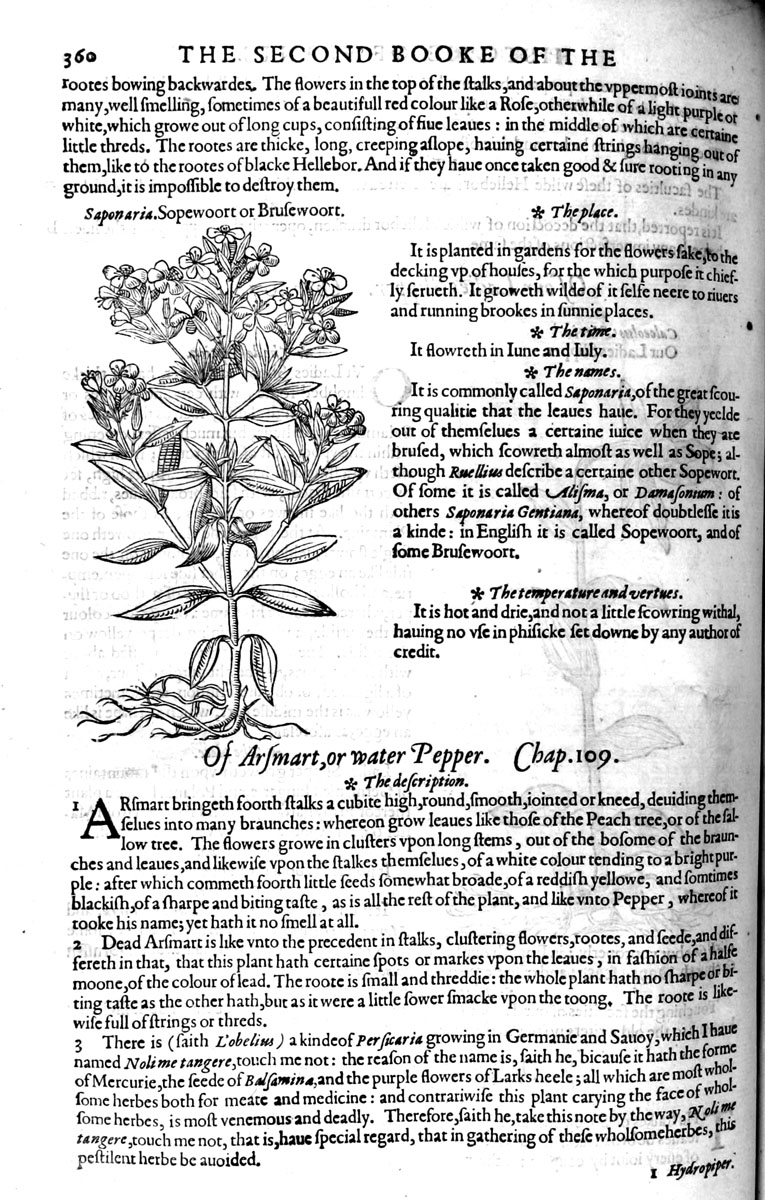 360 THE SECOND BOOKE OF THE
rootes bowing backwardes. The flowers in the top of the ſtalks,and about the vppermoſt ioints are
many,well ſmelling, ſometimes of a beautifull red colour like a Roſe,otherwhile of a light purple or
white,which growe out of long cups, conſiſting of fiue leaues : in the middle of which are certaine
little threds. The rootes are thicke, long, creeping aſlope, hauing certaine ſtrings hanging out of
them,like to the rootes of blacke Hellebor. And if they haue once taken good & ſure rooting in any
ground,it is impoſſible to deſtroy them.
Saponaria.Sopewoort or Bruſewoort.
✻ The place.
It is planted in gardens for the flowers ſake,to the
decking vp of houſes, for the which purpoſe it chief-
ly ſerueth. It groweth wilde of it ſelfe neere to riuers
and running brookes in ſunnie places.
✻ The time.
It flowreth in Iune and Iuly.
✻ The names.
It is commonly called Saponaria,of the great ſcou-
ring qualitie that the leaues haue. For they yeelde
out of themſelues a certaine iuice when they are
bruſed, which ſcowreth almoſt as well as Sope; al-
though Ruellius deſcribe a certaine other Sopewort.
Of ſome it is called Aliſma, or Damaſonium : of
others Saponaria Gentiana, whereof doubtleſſe it is
a kinde : in Engliſh it is called Sopewoort, and of
ſome Bruſewoort.
✻ The temperature and vertues.
It is hot and drie,and not a little ſcowring withal,
hauing no vſe in phiſicke ſet downe by any author of
credit.
Of Arſmart,or water Pepper. Chap.109.
✻ The deſcription.
1 ARſmart bringeth foorth ſtalks a cubite high,round,ſmooth,iointed or kneed, deuiding them-
ſelues into many braunches : whereon grow leaues like thoſe of the Peach tree,or of the ſal-
low tree. The flowers growe in cluſters vpon long ſtems , out of the boſome of the braun-
ches and leaues,and likewiſe vpon the ſtalkes themſelues,of a white colour tending to a bright pur-
ple : after which commeth foorth little ſeeds ſomewhat broade,of a reddiſh yellowe, and ſomtimes
blackiſh,of a ſharpe and biting taſte , as is all the reſt of the plant, and like vnto Pepper , whereof it
tooke his name; yet hath it no ſmell at all.
2 Dead Arſmart is like vnto the precedent in ſtalks, cluſtering flowers,rootes, and ſeede,and dif-
fereth in that, that this plant hath certaine ſpots or markes vpon the leaues , in faſhion of a halfe
moone,of the colour of lead. The roote is ſmall and threddie : the whole plant hath no ſharpe or bi-
ting taſte as the other hath,but as it were a little ſower ſmacke vpon the toong. The roote is like-
wiſe full of ſtrings or threds.
3 There is (ſaith L'obelius) a kinde of Perſicaria growing in Germanie and Sauoy,which I haue
named Noli me tangere,touch me not : the reaſon of the name is, ſaith he, bicauſe it hath the forme
of Mercurie,the ſeede of Balſamina,and the purple flowers of Larks heele ; all which are moſt whol-
ſome herbes both for meate and medicine : and contrariwiſe this plant carying the face of whol-
ſome herbes, is moſt venemous and deadly. Therefore,ſaith he,take this note by the way, Noli me
tangere,touch me not, that is,haue ſpecial regard, that in gathering of theſe wholſome herbes, this
peſtilent herbe be auoided.
1 Hydropiper.